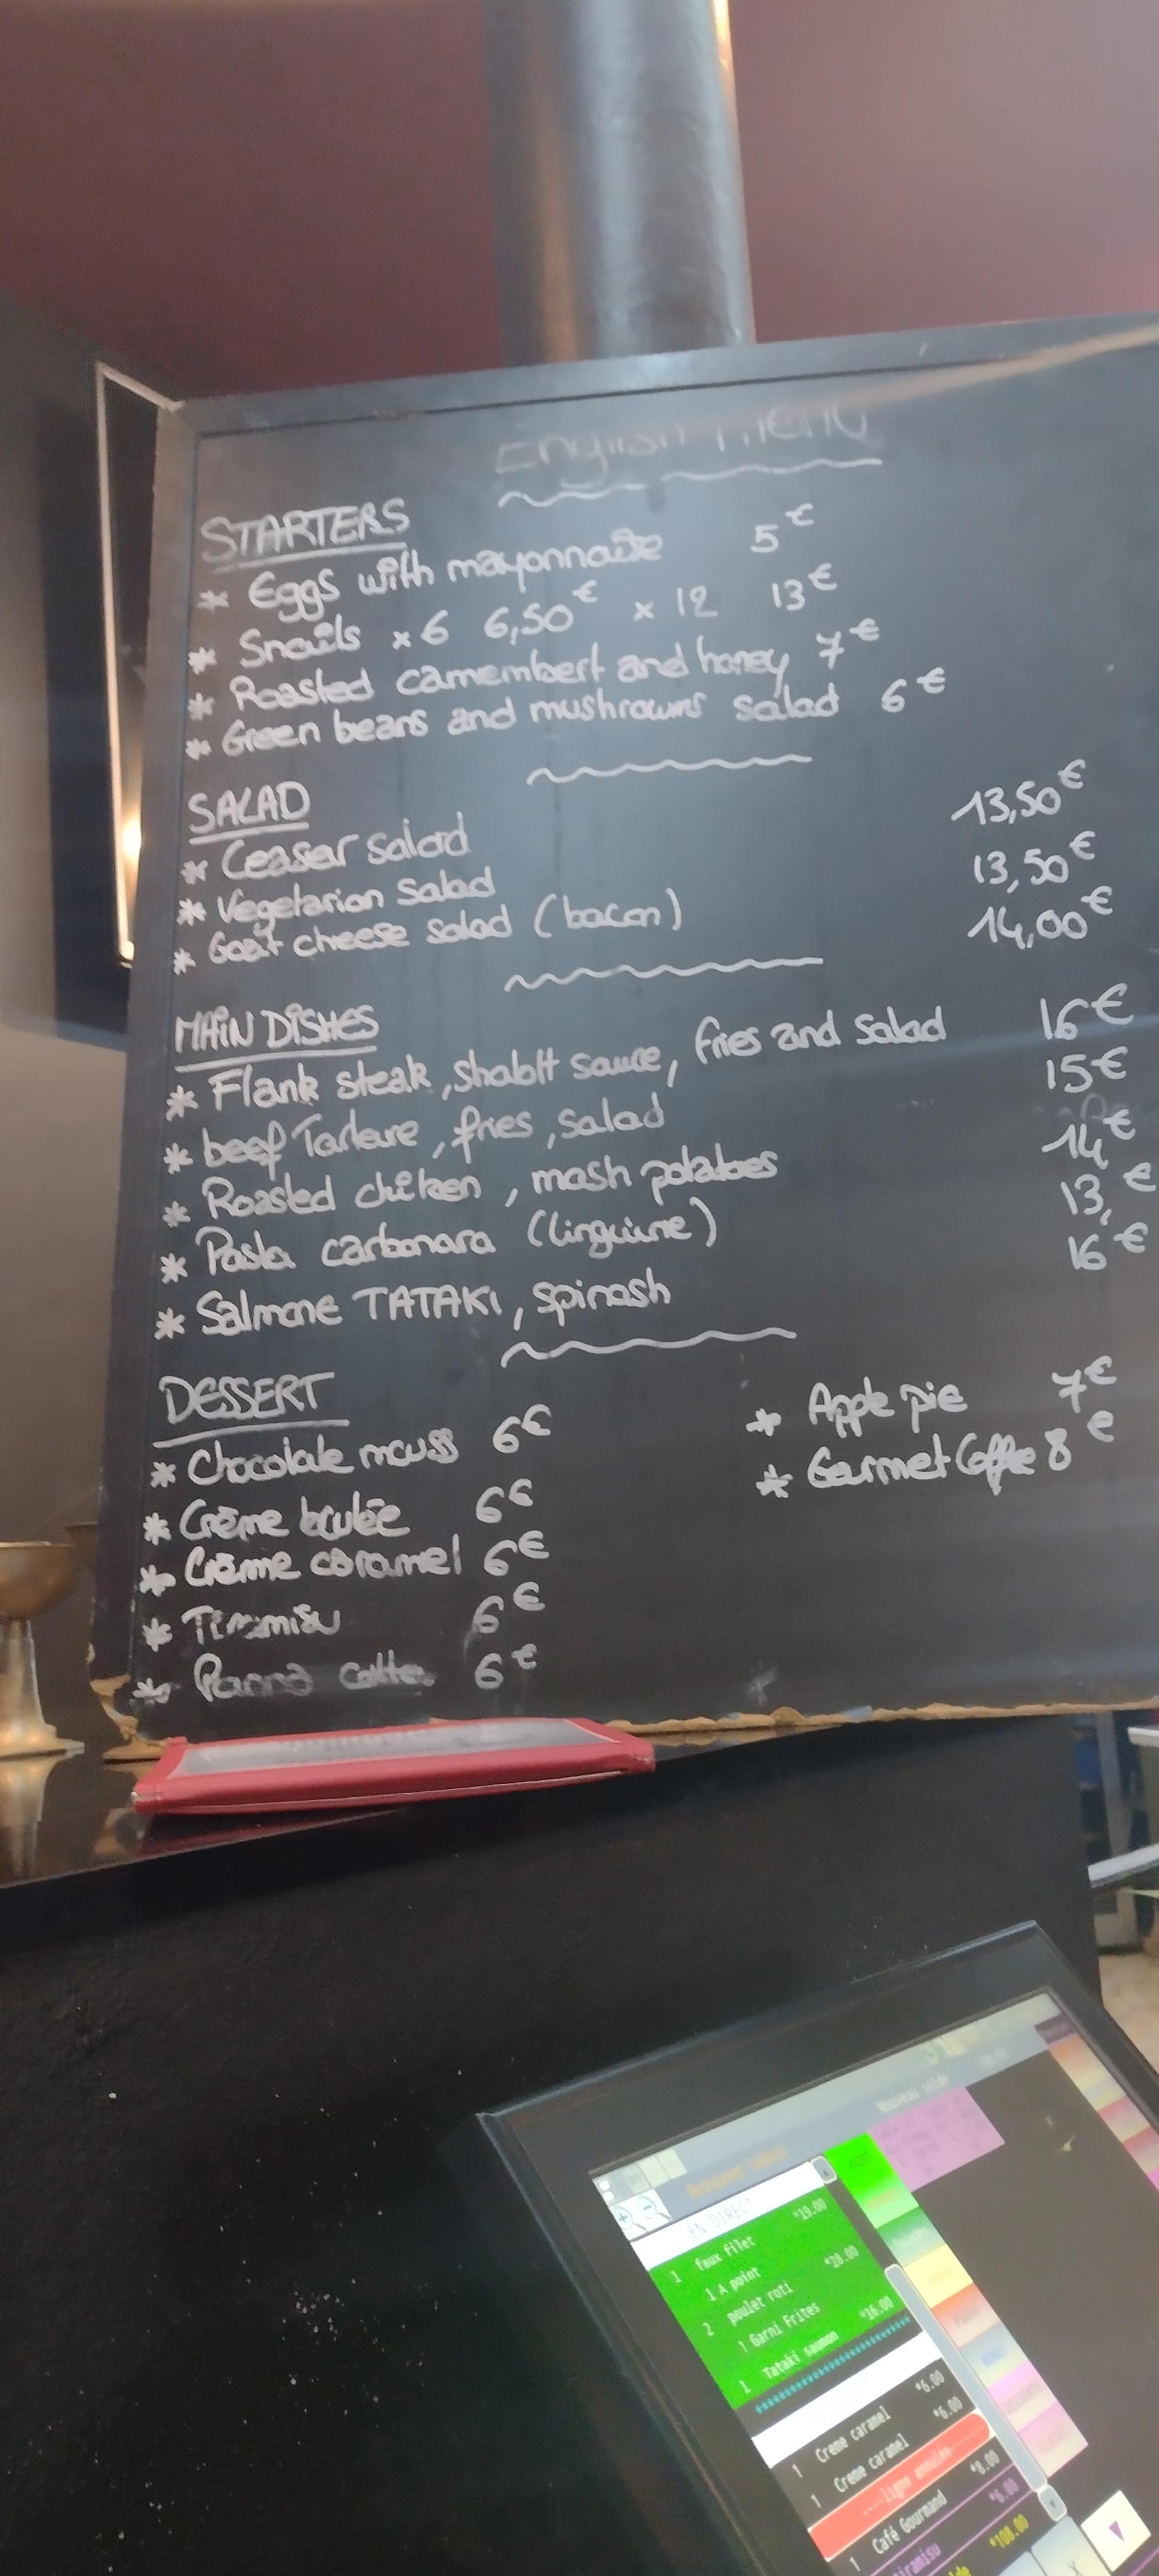 English MENU
STARTERS
* Eggs with mayonnaise 5€
* Snails x6 6,50€ x12 13€
* Roasted camembert and honey 7€
* Green beans and mushrowms salad 6€
SALAD
* Ceasar salad 13,50€
* Vegetarian salad 13,50€
* Goat cheese salad (bacon) 14,00€
MAIN DISHES
* Flank steak, shablt sauce, fries and salad 16€
* beef Tartare, fries, salad 15€
* Roasted chiken, mash potatoes 14€
* Pasta carbonara (linguine) 13,€
* Salmone TATAKI, spinash 16€
DESSERT
* Chocolate mouss 6€
* Crème brulée 6€
* Crème caramel 6€
* Tiramisu 6€
* Panna cotta 6€
* Apple pie 7€
* Gourmet Coffee 8€
Nouveau solde
EN DIRECT
1 faux filet *19.00
1 A point
2 poulet roti *28.00
1 Garni Frites
1 Tataki saumon *16.00
1 Creme caramel *6.00
1 Creme caramel *6.00
----ligne annulée----
1 Café Gourmand *8.00
tiramisu *6.00
*100.00